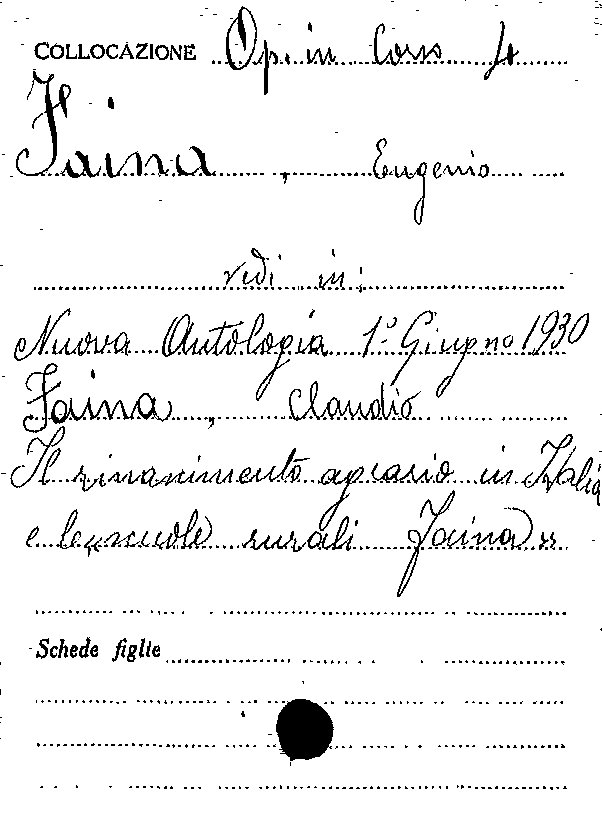 COLLOCAZIONE Op. in Corso 4
Faina, Eugenio
vedi in:
Nuova Antologia 1º Giugno 1930
Faina, Claudio
Il rinascimento agrario in Italia
e le „scuole rurali Faina»
Schede figlie